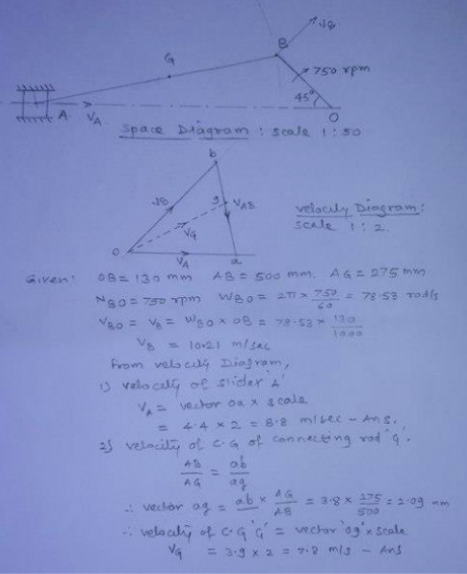 VB
B
G
750 rpm
45°
A VA O
Space Diagram : Scale 1 : 50
b
VB g VAB
VG
velocity Diagram :
scale 1 : 2.
o VA a
Given : OB = 130 mm AB = 500 mm. AG = 275 mm
NBO = 750 rpm WBO = 2π × 750/60 = 78.53 rad/s
VBO = VB = WBO × OB = 78.53 × 130/1000
VB = 10.21 m/sec
From velocity Diagram,
1) velocity of slider 'A'
VA = vector oa × scale
= 4.4 × 2 = 8.8 m/sec - Ans.
2) velocity of C.G of connecting rod 'G'.
AB/AG = ab/ag
∴ vector ag = ab × AG/AB = 3.8 × 275/500 = 2.09 mm
∴ velocity of C.G 'G' = vector 'og' × scale
VG = 3.9 × 2 = 7.8 m/s - Ans